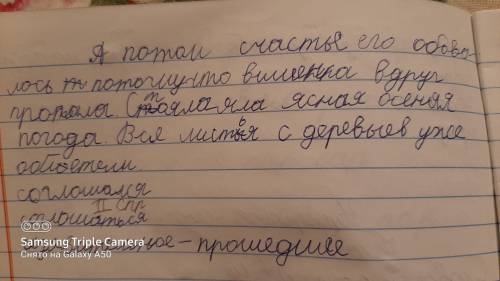 А потом счастье его обова-
лось потому что вишенка вдруг
пропала. Стояла ясная осеняя
погода. Все листья с деревьев уже
облетели.
соглошался
соглошаться
II спр
прошедшее
Samsung Triple Camera
Снято на Galaxy A50